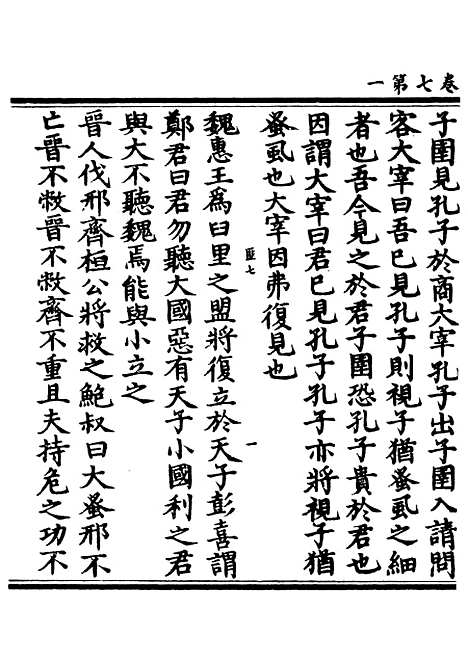 卷七第一
子圉見孔子於商大宰孔子出子圉入請問
客大宰曰吾已見孔子則視子猶蚤虱之細
者也吾今見之於君子圉恐孔子貴於君也
因謂大宰曰君已見孔子孔子亦將視子猶
蚤虱也大宰因弗復見也
匪七
一
魏惠王爲臼里之盟將復立於天子彭喜謂
鄭君曰君勿聽大國惡有天子小國利之君
與大不聽魏焉能與小立之
晉人伐邢齊桓公將救之鮑叔曰大蚤邢不
亡晉不敝晉不敝齊不重且夫持危之功不